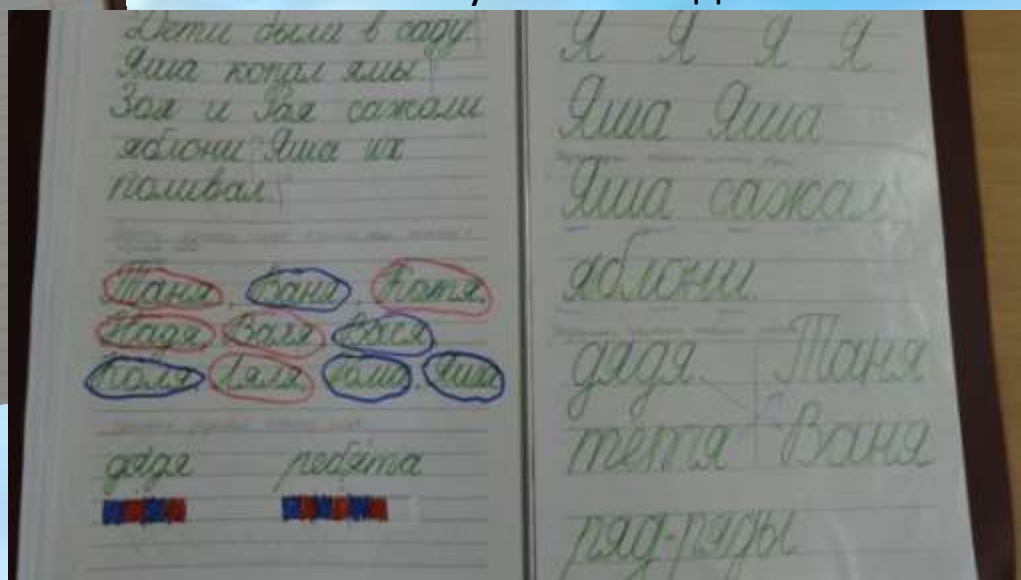 Дети были в саду.
Яша копал ямы.
Зоя и Рая сажали
яблони. Яша их
поливал.
Таня, Ваня, Катя,
Надя, Валя, Вася,
Коля, Ляля, Толя, Яша
дядя ребята
Я Я Я Я
Яша Яша
Яша сажал
яблони.
дядя Таня
тётя Ваня
ряд-ряды